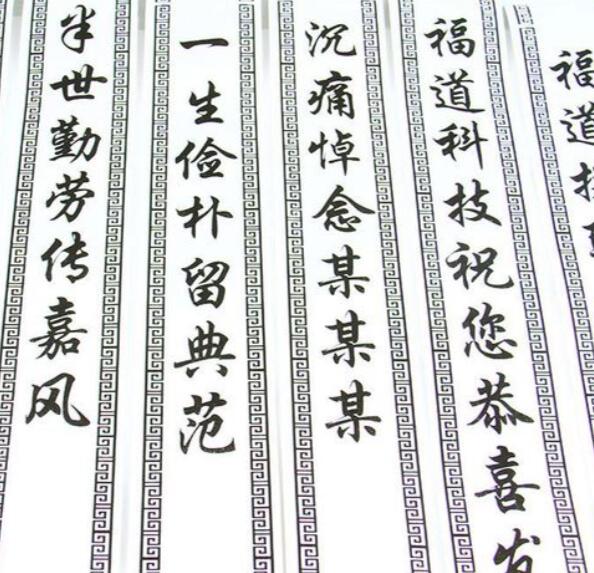 福道
福道科技祝您恭喜发
沉痛悼念某某某
一生俭朴留典范
半世勤劳传嘉风